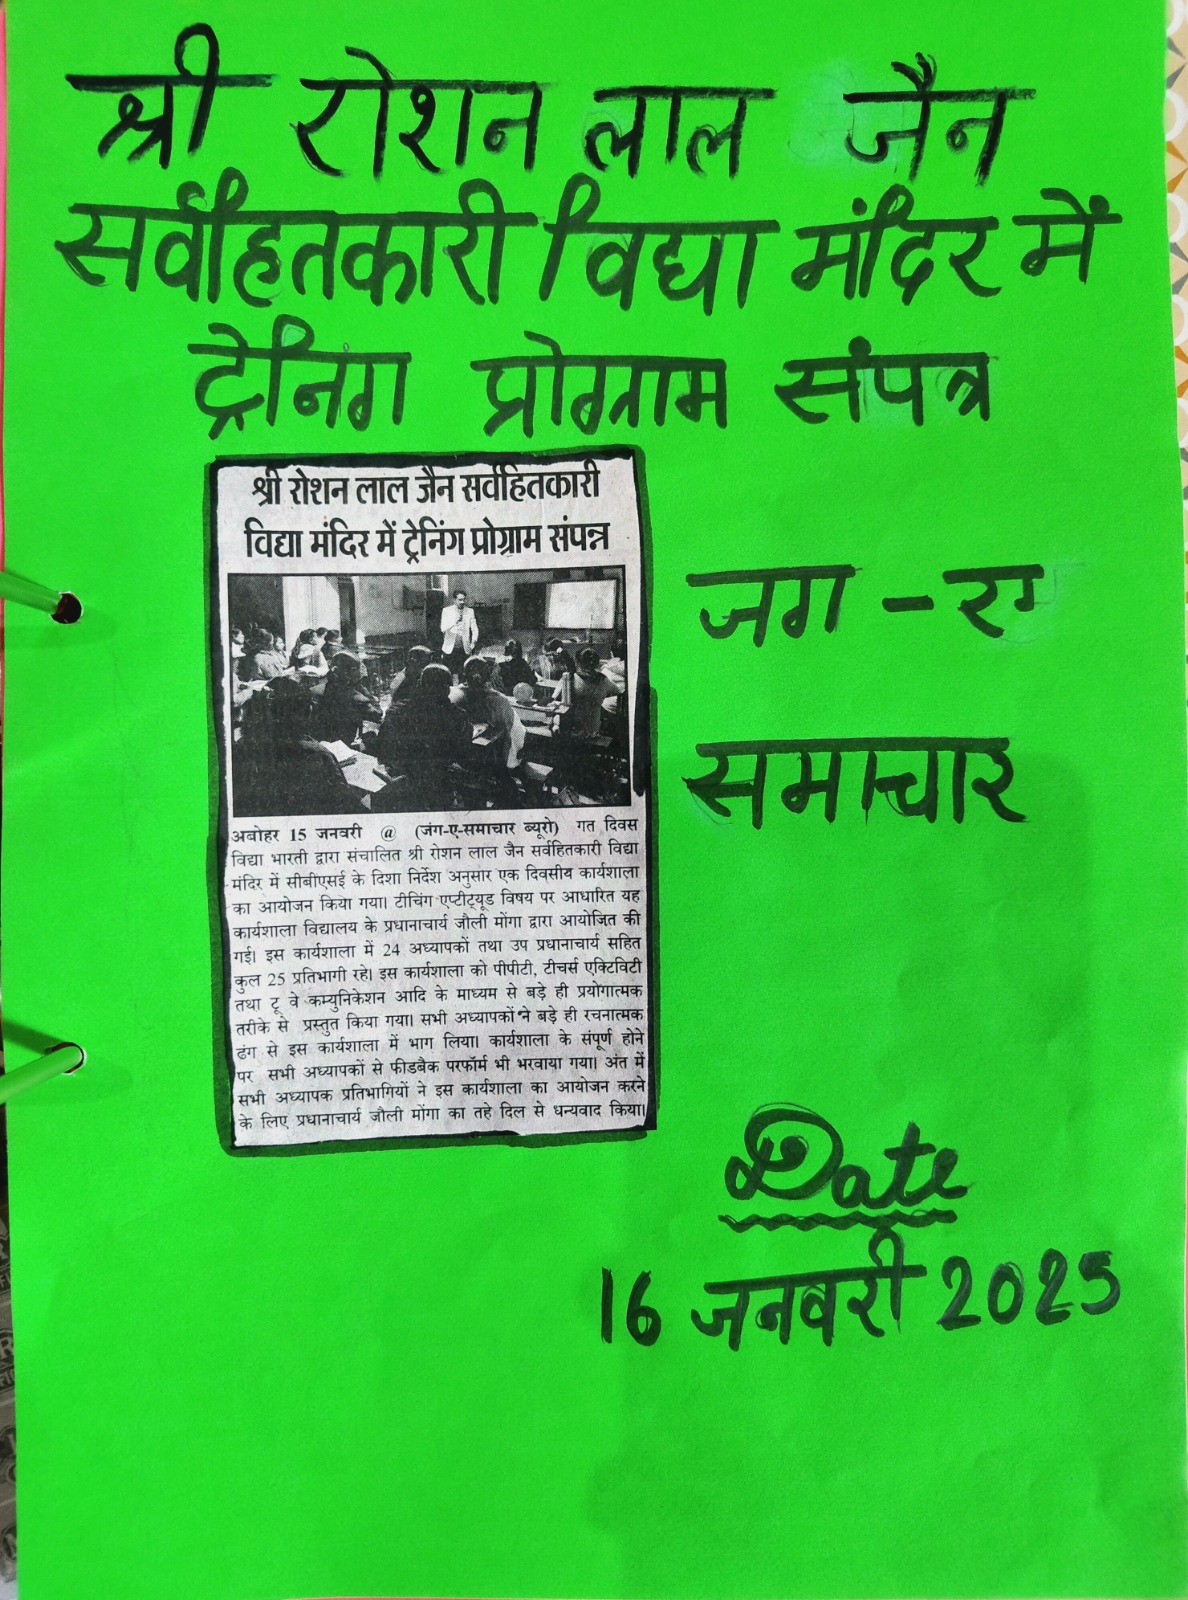 श्री रोशन लाल जैन
सर्वहितकारी विद्या मंदिर में
ट्रेनिंग प्रोग्राम संपन्न
श्री रोशन लाल जैन सर्वहितकारी
विद्या मंदिर में ट्रेनिंग प्रोग्राम संपन्न
अबोहर 15 जनवरी @ (जंग-ए-समाचार ब्यूरो) गत दिवस
विद्या भारती द्वारा संचालित श्री रोशन लाल जैन सर्वहितकारी विद्या
मंदिर में सीबीएसई के दिशा निर्देश अनुसार एक दिवसीय कार्यशाला
का आयोजन किया गया। टीचिंग एप्टीट्यूड विषय पर आधारित यह
कार्यशाला विद्यालय के प्रधानाचार्य जौली मोंगा द्वारा आयोजित की
गई। इस कार्यशाला में 24 अध्यापकों तथा उप प्रधानाचार्य सहित
कुल 25 प्रतिभागी रहे। इस कार्यशाला को पीपीटी, टीचर्स एक्टिविटी
तथा टू वे कम्युनिकेशन आदि के माध्यम से बड़े ही प्रयोगात्मक
तरीके से प्रस्तुत किया गया। सभी अध्यापकों ने बड़े ही रचनात्मक
ढंग से इस कार्यशाला में भाग लिया। कार्यशाला के संपूर्ण होने
पर सभी अध्यापकों से फीडबैक परफॉर्म भी भरवाया गया। अंत में
सभी अध्यापक प्रतिभागियों ने इस कार्यशाला का आयोजन करने
के लिए प्रधानाचार्य जौली मोंगा का तहे दिल से धन्यवाद किया।
जग -
समाचार
Date
16 जनवरी 2025